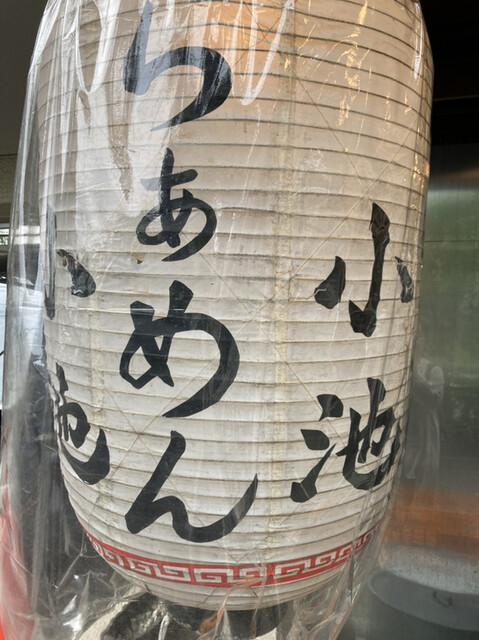 小池
らぁめん
小池